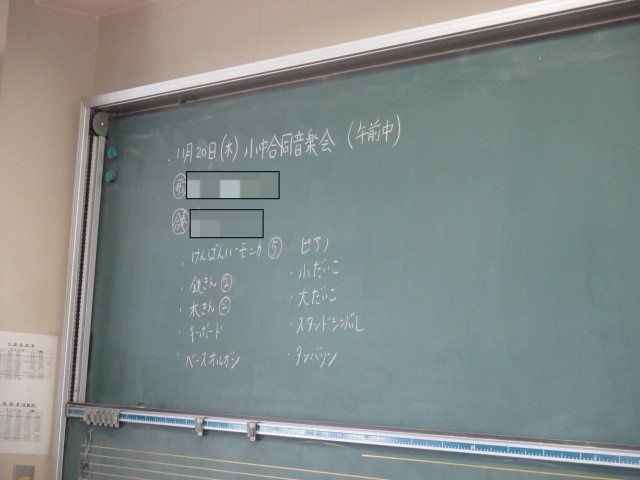 ・11月20日(木) 小中合同音楽会 (午前中)
・けんばんハーモニカ ⑤ ピアノ
・鉄きん ② ・小だいこ
・木きん ② ・大だいこ
・キーボード ・スタンドシンバル
・ベースオルガン ・タンバリン